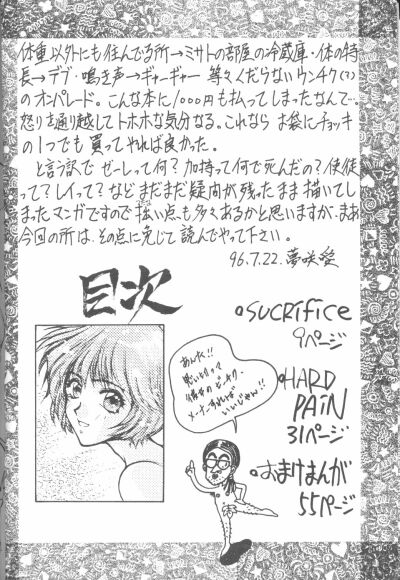 体重以外にも住んでる所→ミサトの部屋の冷蔵庫・体の特
長→デブ・鳴き声→ギャーギャー 等々くだらないウンチク(?)
のオンパレード。こんな本に1000円も払ってしまったなんて…
怒りを通り越してトホホな気分なる。これなら お袋にチョッキ
の1つでも買ってやれば良かった。
と言う訳でゼーレって何？加持って何で死んだの？使徒
って？レイって？など まだまだ疑問が残ったまま描いてし
まったマンガですので拙い点も多々あるかと思いますが、まあ
今回の所は、その点に免じて 読んでやって下さい。
96.7.22. 夢咲愛
目次
SUCRIFICE
9ページ
HARD
PAIN
31ページ
おまけまんが
55ページ
あんた!!
いいじゃん!!